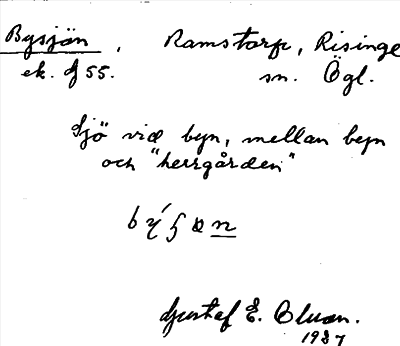 Bysjön, Ramstorp, Risinge
ek. J 55. sn. Ögl.
Sjö vid byn, mellan byn
och "herrgården"
Gustaf E.
1937